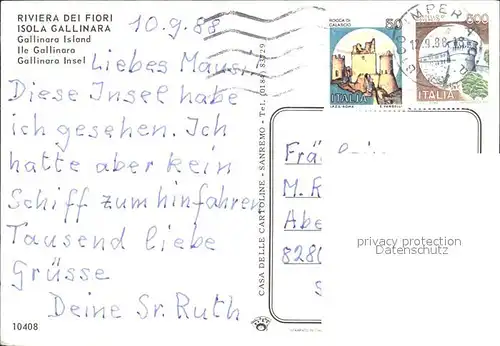 RIVIERA DEI FIORI
ISOLA GALLINARA
Gallinara Island
Ile Gallinara
Gallinara Insel
10.9.88
Liebes Mausi
Diese Insel habe
ich gesehen. Ich
hatte aber kein
Schiff zum hinfahren
Tausend liebe
Grüsse
Deine Sr. Ruth
10408
CASA DELLE CARTOLINE - SANREMO - Tel. (0184) 83229
ROCCA DI CALASCIO
50
ITALIA
ITALIA
IMPERIA
M.
privacy protection
Datenschutz